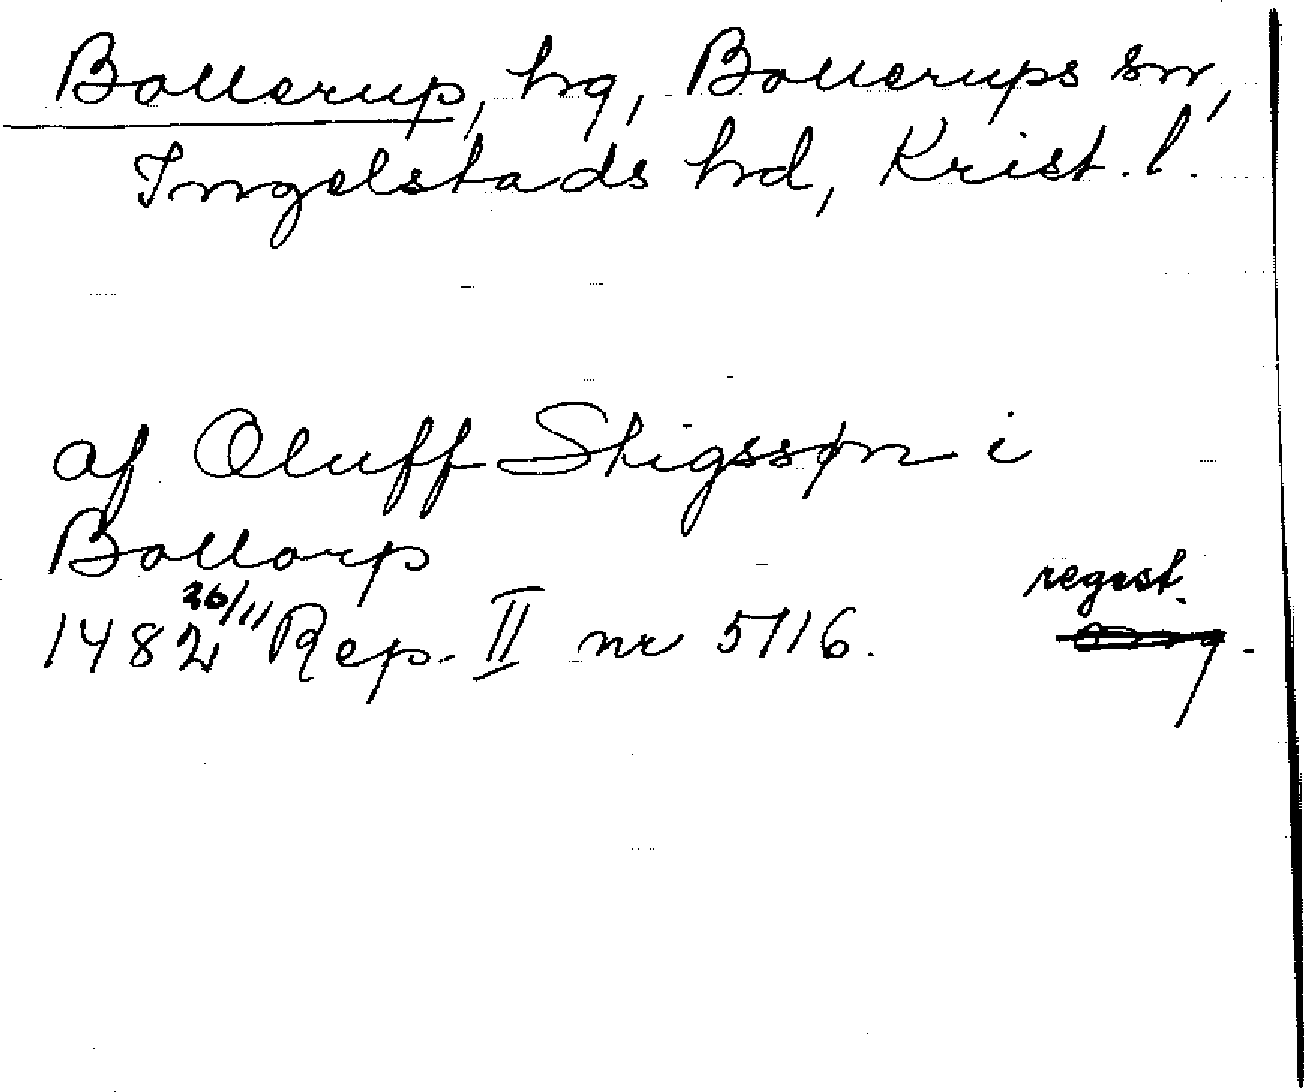 Bollerup, hg, Bollerups sn,
Ingelstads hd, Krist. l.
af Oluff Stigssøn i
Bollorp
regest.
1482 26/11 Rep. II nr 5716.